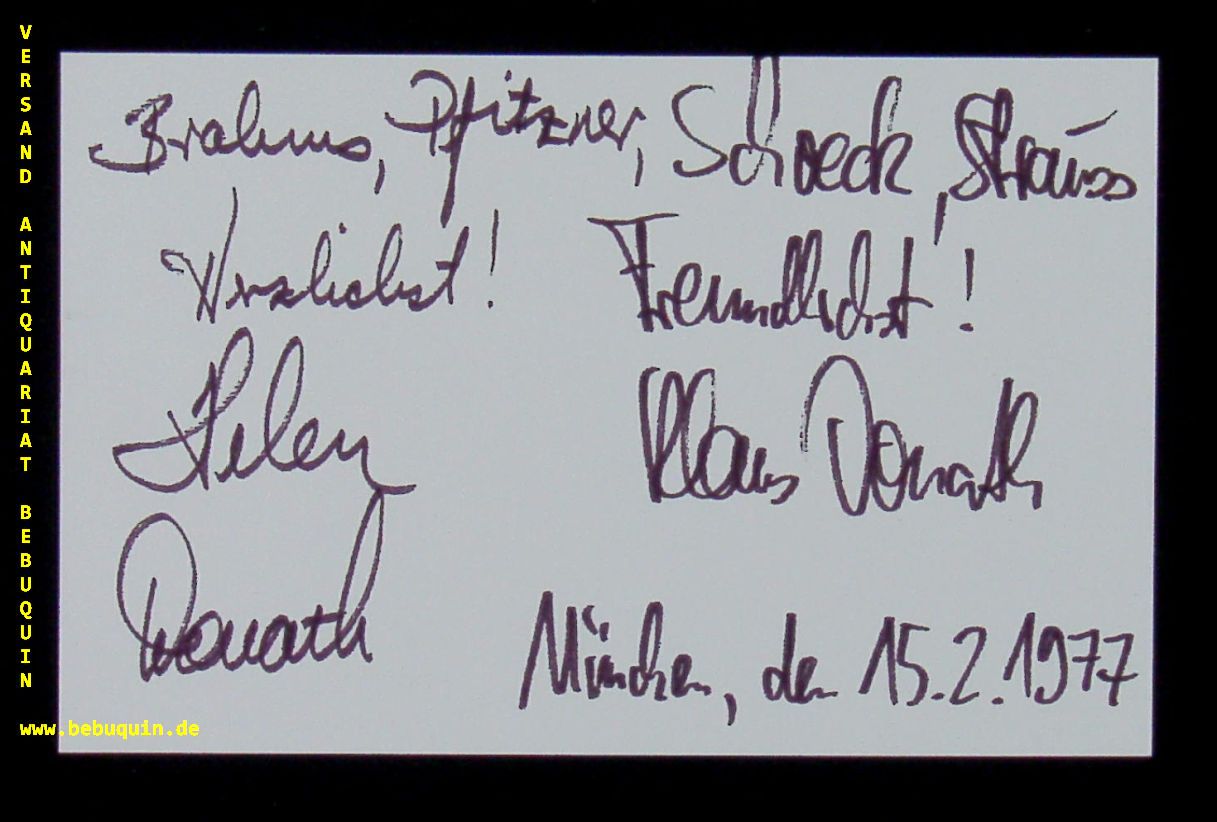 VERSAND ANTIQUARIAT BEBUQUIN
Brahms, Pfitzner, Schoeck, Strauss
Herzlichst! Freundlichst!
Helen Klaus Donath
Donath
München, den 15.2.1977
www.bebuquin.de